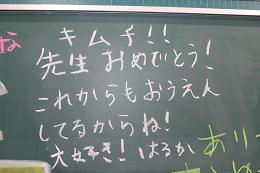 な
キムチ!!
先生 おめでとう!
これからもおうえん
してるからね!
大好き! はるか
あり